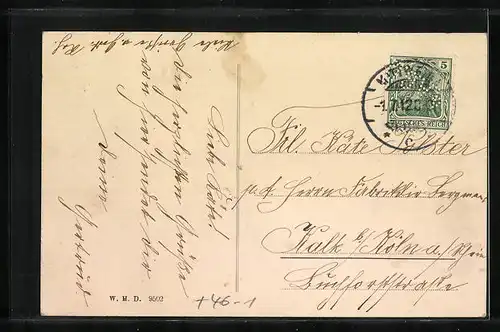 Viele Grüße
Liebe Käte!
Die herzlichsten Grüße
von hier sendet Dir
Deine
Gertrud
5
-1.7.12
DEUTSCHES REICH
C
Frl. Käte
p. A. Herrn Fabrikbes. Bergmann
Kalk b/Köln a/Rhein
Buchforststraße
W. H. D. 9502
+46-1